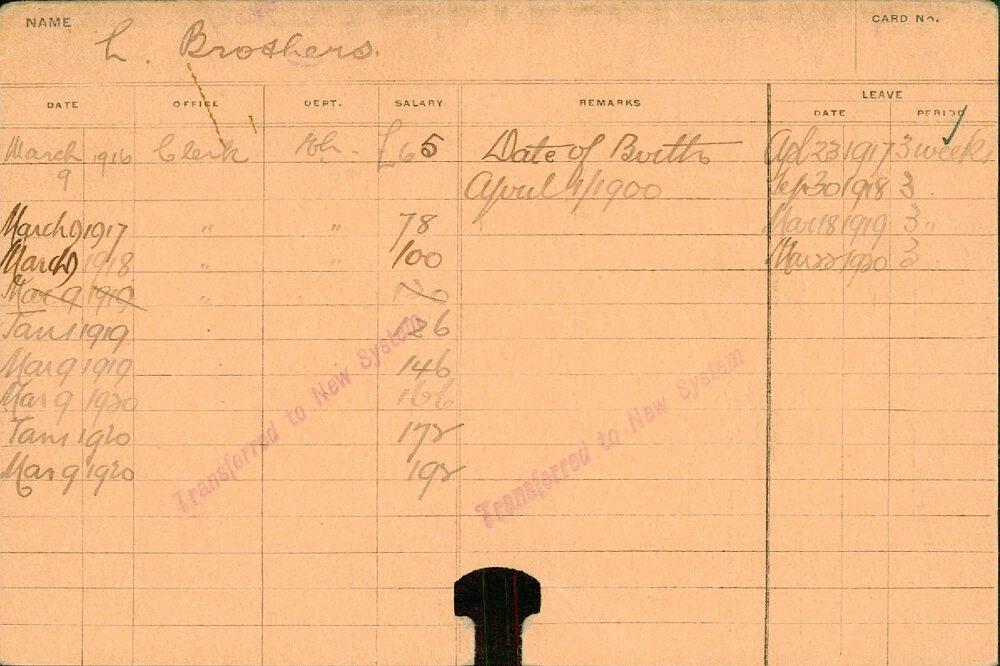 NAME
L. Brothers.
CARD No.
DATE OFFICE DEPT. SALARY REMARKS LEAVE
DATE PERIOD
March 9 1916 Clerk £65 Date of Birth Apl 23 1917 3 weeks
April 1900 Sep 30 1918 3
March 9 1917 " " 78 Mar 18 1919 3 "
March 9 1918 " " 100 Mar 22 1920 3
Mar 9 1919 " 120
Jan 1 1919 126
Mar 9 1919 146
Mar 9 1920 166
Jan 1 1920 172
Mar 9 1920 192
Transferred to New System
Transferred to New System